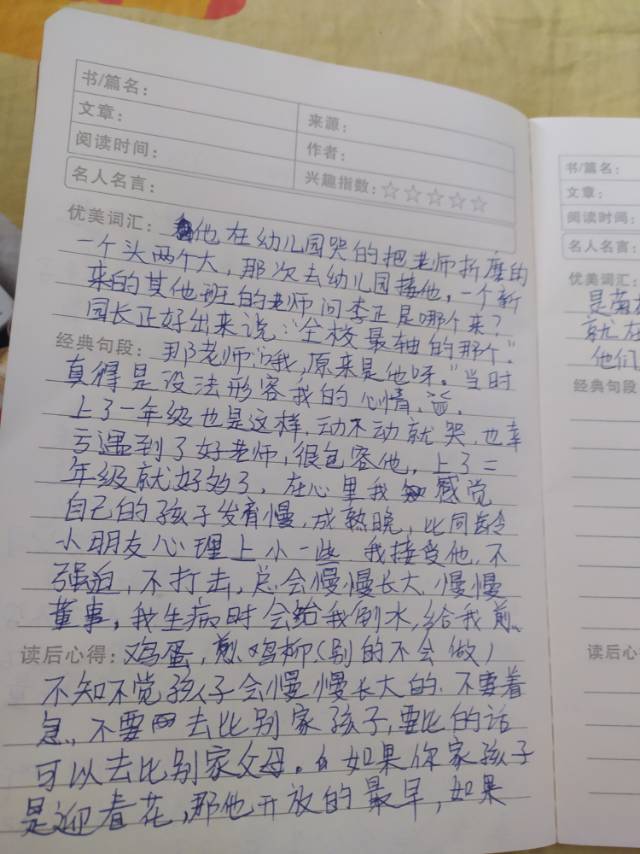 书/篇名：
文章：
来源：
阅读时间：
作者：
名人名言：
兴趣指数：☆☆☆☆☆
优美词汇：他在幼儿园哭的把老师折磨的
一个头两个大，那次去幼儿园接他，一个新
来的其他班的老师问李正是哪个来？
园长正好出来说：“全校最轴的那个。”
经典句段：那老师：“哦，原来是他呀。”当时
真得是没法形容我的心情。
上了一年级也是这样，动不动就哭，也幸
亏遇到了好老师，很包容他，上了二
年级就好多了，在心里我感觉
自己的孩子发育慢，成熟晚，比同龄
小朋友心理上小一些 我接受他，不
强迫，不打击，总会慢慢长大 慢慢
董事，我生病时会给我倒水，给我煎、
读后心得：鸡蛋，煎鸡柳（别的不会做）
不知不觉孩子会慢慢长大的．不要着
急、不要去比别家孩子，要比的话
可以去比别家父母。如果你家孩子
是迎春花，那他开放的最早，如果
书/篇名：
文章：
阅读时间：
名人名言：
优美词汇：
是
就在
他们
经典句段
读后心